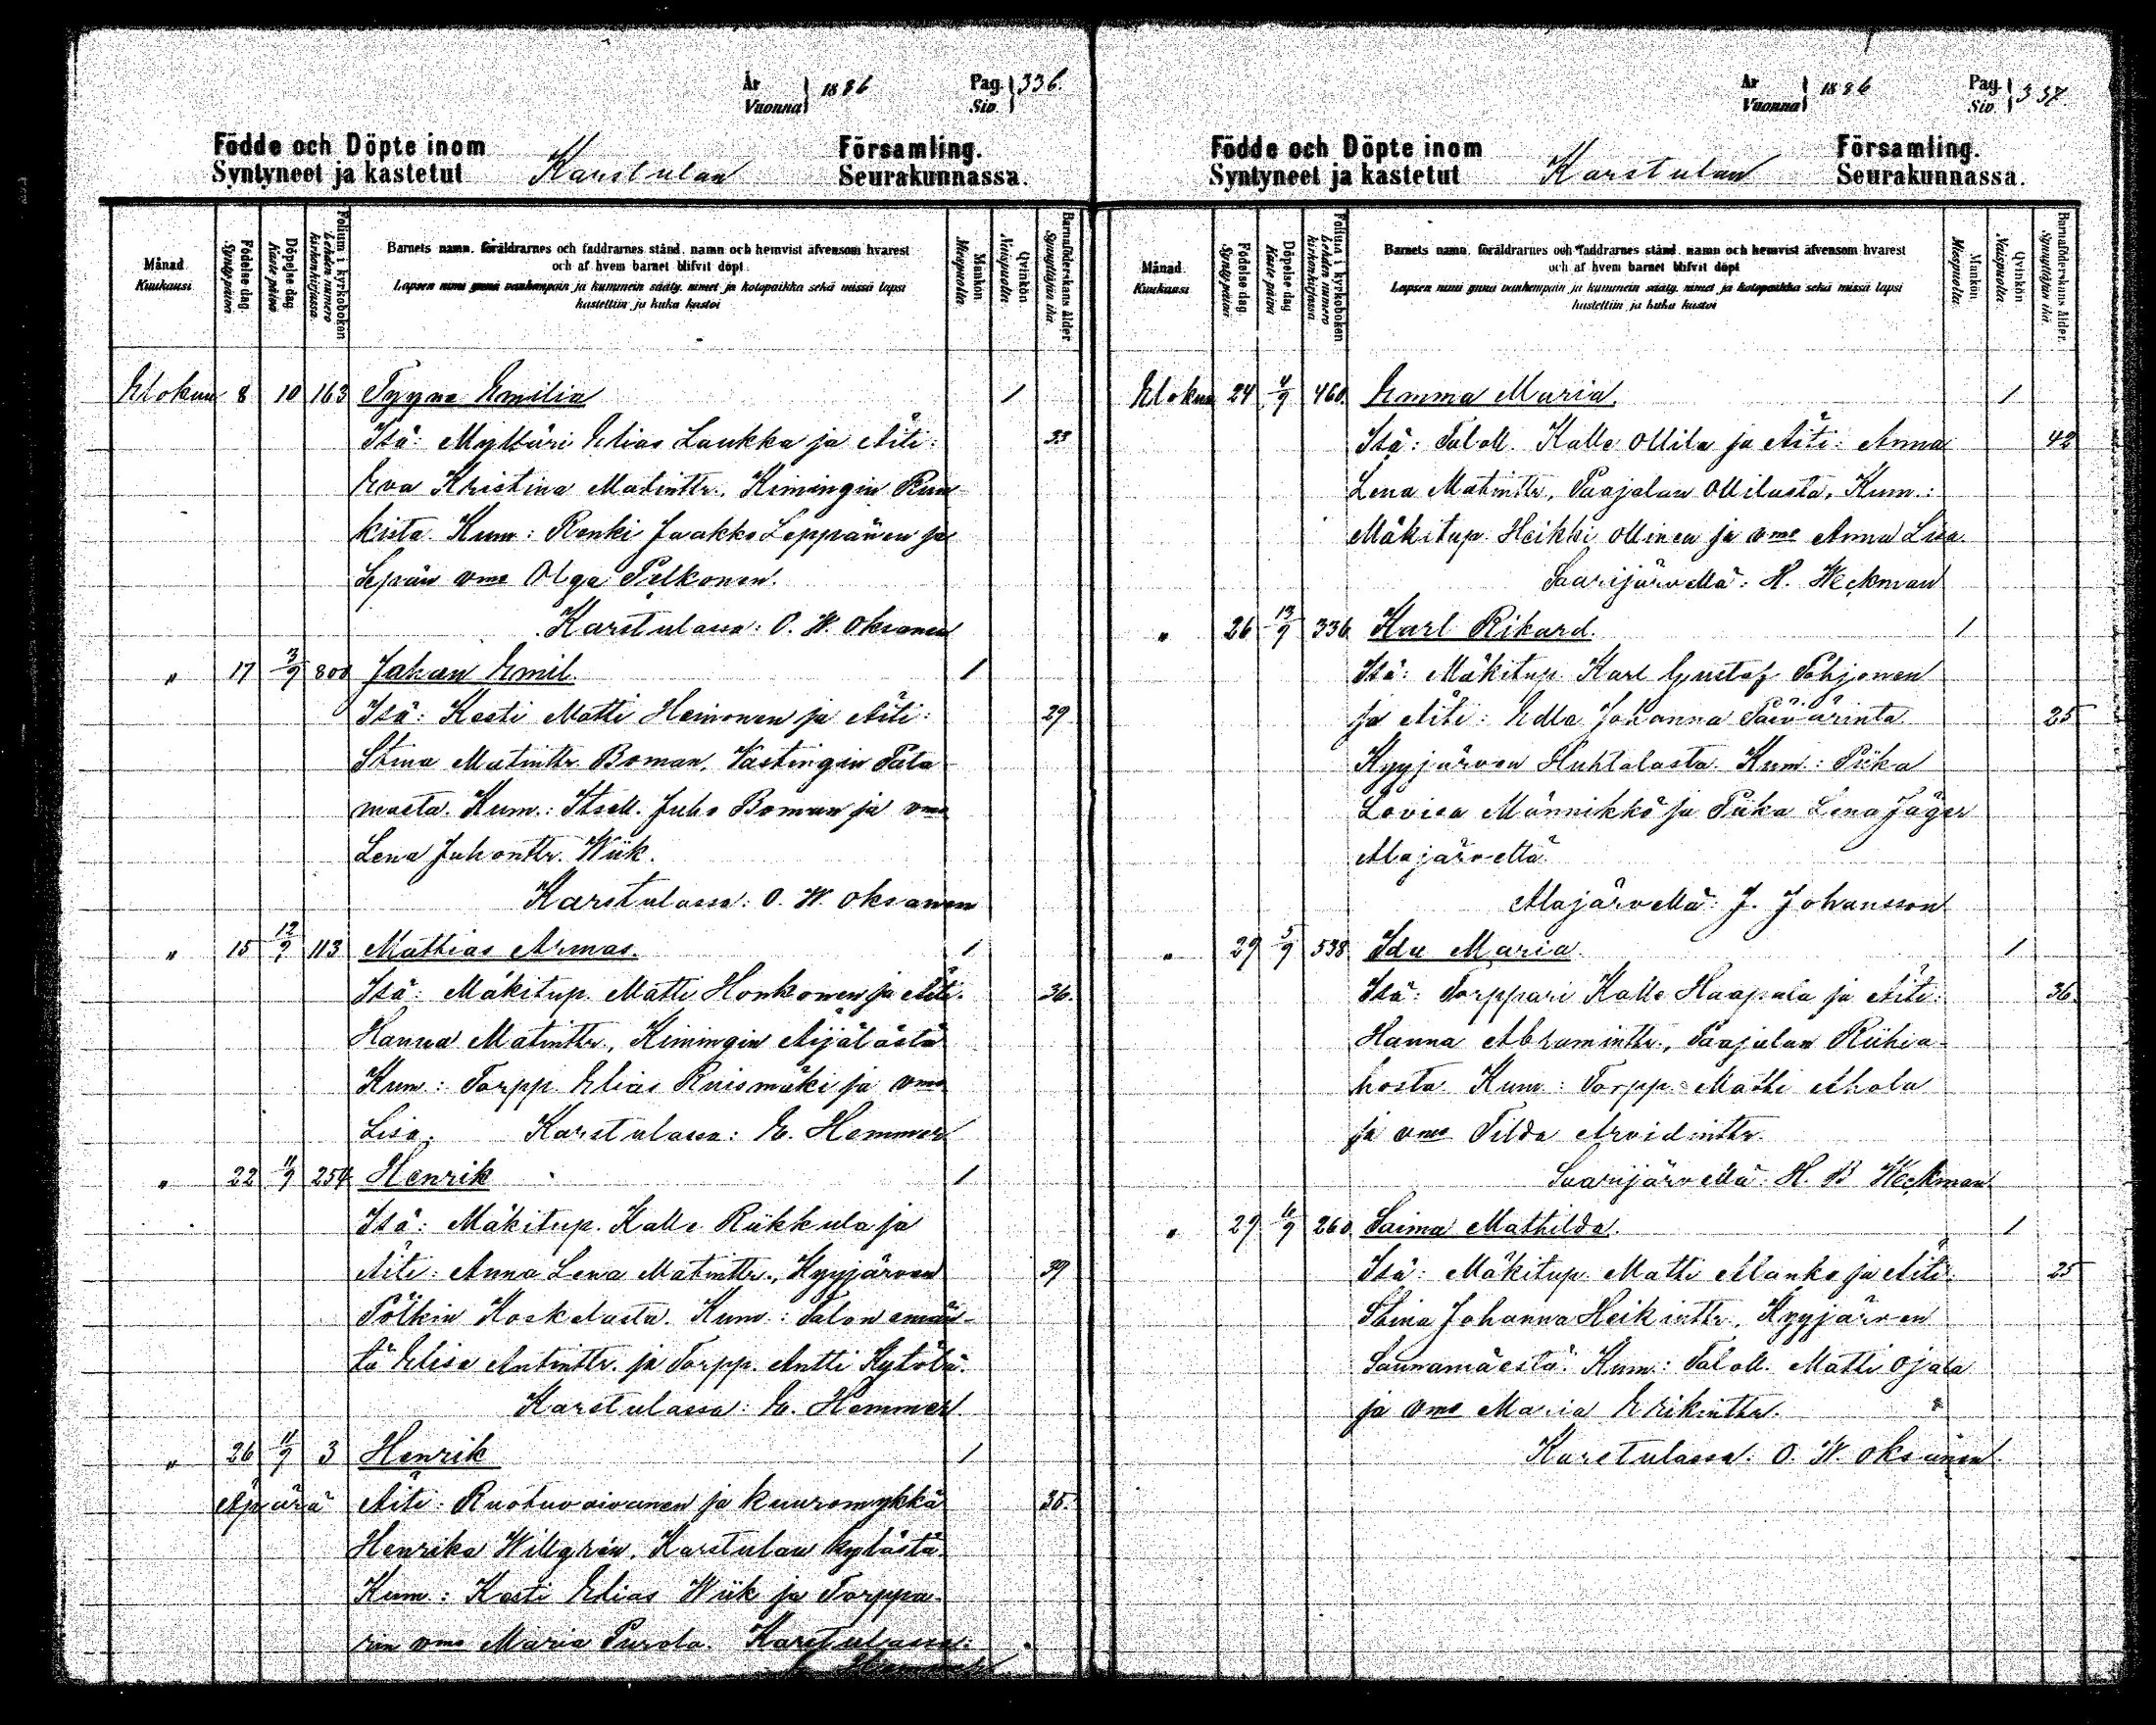 År
Vuonna } 1886 Pag. Siv. } 336.
Födde och Döpte inom Församling.
Syntyneet ja kastetut Karstulan Seurakunnassa.
Månad. Kuukausi. Födelse dag. Syntypäivä Döpelse dag Kaste päivä Folium i kyrkoboken Lehden numero kirkonkirjassa. Barnets namn, föräldrarnes och faddrarnes stånd, namn och hemvist äfvensom hvarest och af hvem barnet blifvit döpt. Mankön. Miespuolia. Qvinkön. Naispuolia. Barnaföderskans ålder. Synnyttäjän ikä
Lapsen nimi ynnä vanhempain ja kummein sääty, nimet ja kotopaikka sekä missä lapsi
kastettiin ja kuka kastoi
Elokuu 8 10 163 Tyyne Emilia 1
Isä: Mylläri Elias Laukka ja Äiti: 33
Eva Kristina Matintr., Kimingin
kista. Kum: Renki Jaakko Leppänen ja
Sepän vmo Olga Pelkonen.
Karstulassa: O. W. Oksanen
" 17 3/9 800 Johan Emil. 1
Isä: Kesti Matti Heinonen ja Äiti: 29
Stina Matintr. Boman, Vastingin Pata
maeta. Kum.: Itsell. Juho Boman ja vmo
Lena Juhontr. Wiik.
Karstulassa: O. W. Oksanen
" 15 12/9 113 Mathias Armas. 1
Isä: Mäkitup. Matti Honkonen ja Äiti: 36.
Hanna Matintr., Kimingin Äijälästä
Kum: Torpp. Elias Ruismäki ja vmo
Lisa. Karstulassa: E. Hemmer
" 22 11/9 254 Henrik 1
Isä: Mäkitup. Kalle Riikkula ja
Äiti: Anna Lena Matintr., Kyyjärven 39
Pölkin Koskelasta. Kum: Talon emän-
tä Elisa Antintr. ja Torpp. Antti Kytölä.
Karstulassa: E. Hemmer
" 26 11/9 3 Henrik 1
Äpärä Äiti: Ruotuvaivanen ja kuuromykkä 35.
Henrika Willgrén, Karstulan kylästä.
Kum: Kesti Elias Wiik ja Torppa-
rin vmo Maria Purola. Karstulassa:
E. Hemmer
År
Vuonna } 1886 Pag. Siv. } 337.
Födde och Döpte inom Församling.
Syntyneet ja kastetut Karstulan Seurakunnassa.
Månad. Kuukausi. Födelse dag. Syntypäivä Döpelse dag Kaste päivä Folium i kyrkoboken Lehden numero kirkonkirjassa Barnets namn, föräldrarnes och faddrarnes stånd, namn och hemvist äfvensom hvarest och af hvem barnet blifvit döpt Mankön. Miespuolia. Qvinkön. Naispuolia. Barnaföderskans ålder. Synnyttäjän ikä
Lapsen nimi ynnä vanhempain ja kummein sääty, nimet ja kotopaikka sekä missä lapsi
kastettiin ja kuka kastoi
Elokuu 24 4/9 460. Emma Maria. 1
Isä: Taloll. Kalle Ollila ja Äiti: Anna 42
Lena Matintr., Paajalan Ollilasta. Kum.:
Mäkitup. Heikki Ollinen ja vmo Anna Lisa.
Saarijärvellä: H. Weckman
" 26 13/9 336 Karl Rikard. 1
Isä: Mäkitup. Karl Gustaf Pohjonen
ja Äiti: Edla Johanna Päivärinta 25
Kyyjärven Huhtalasta. Kum: Piika
Lovisa Männikkö ja Piika Lena Jäger
Alajärvellä.
Alajärvellä: J. Johansson
" 29 5/9 538 Ida Maria. 1
Isä: Torppari Kalle Haapala ja Äiti: 36.
Hanna Abramintr., Paajalan Riihia-
hosta. Kum: Torpp. Matti Ahola
ja vmo Tilda Arvidintr.
Saarijärvellä: H. B Weckman
" 29 6/9 260. Saima Mathilda. 1
Isä: Mäkitup. Matti Alanko ja Äiti: 25
Stina Johanna Heikintr., Kyyjärven
Saunamäestä. Kum: Taloll. Matti Ojala
ja vmo Maria Erikintr.
Karstulassa: O. W. Oksanen.